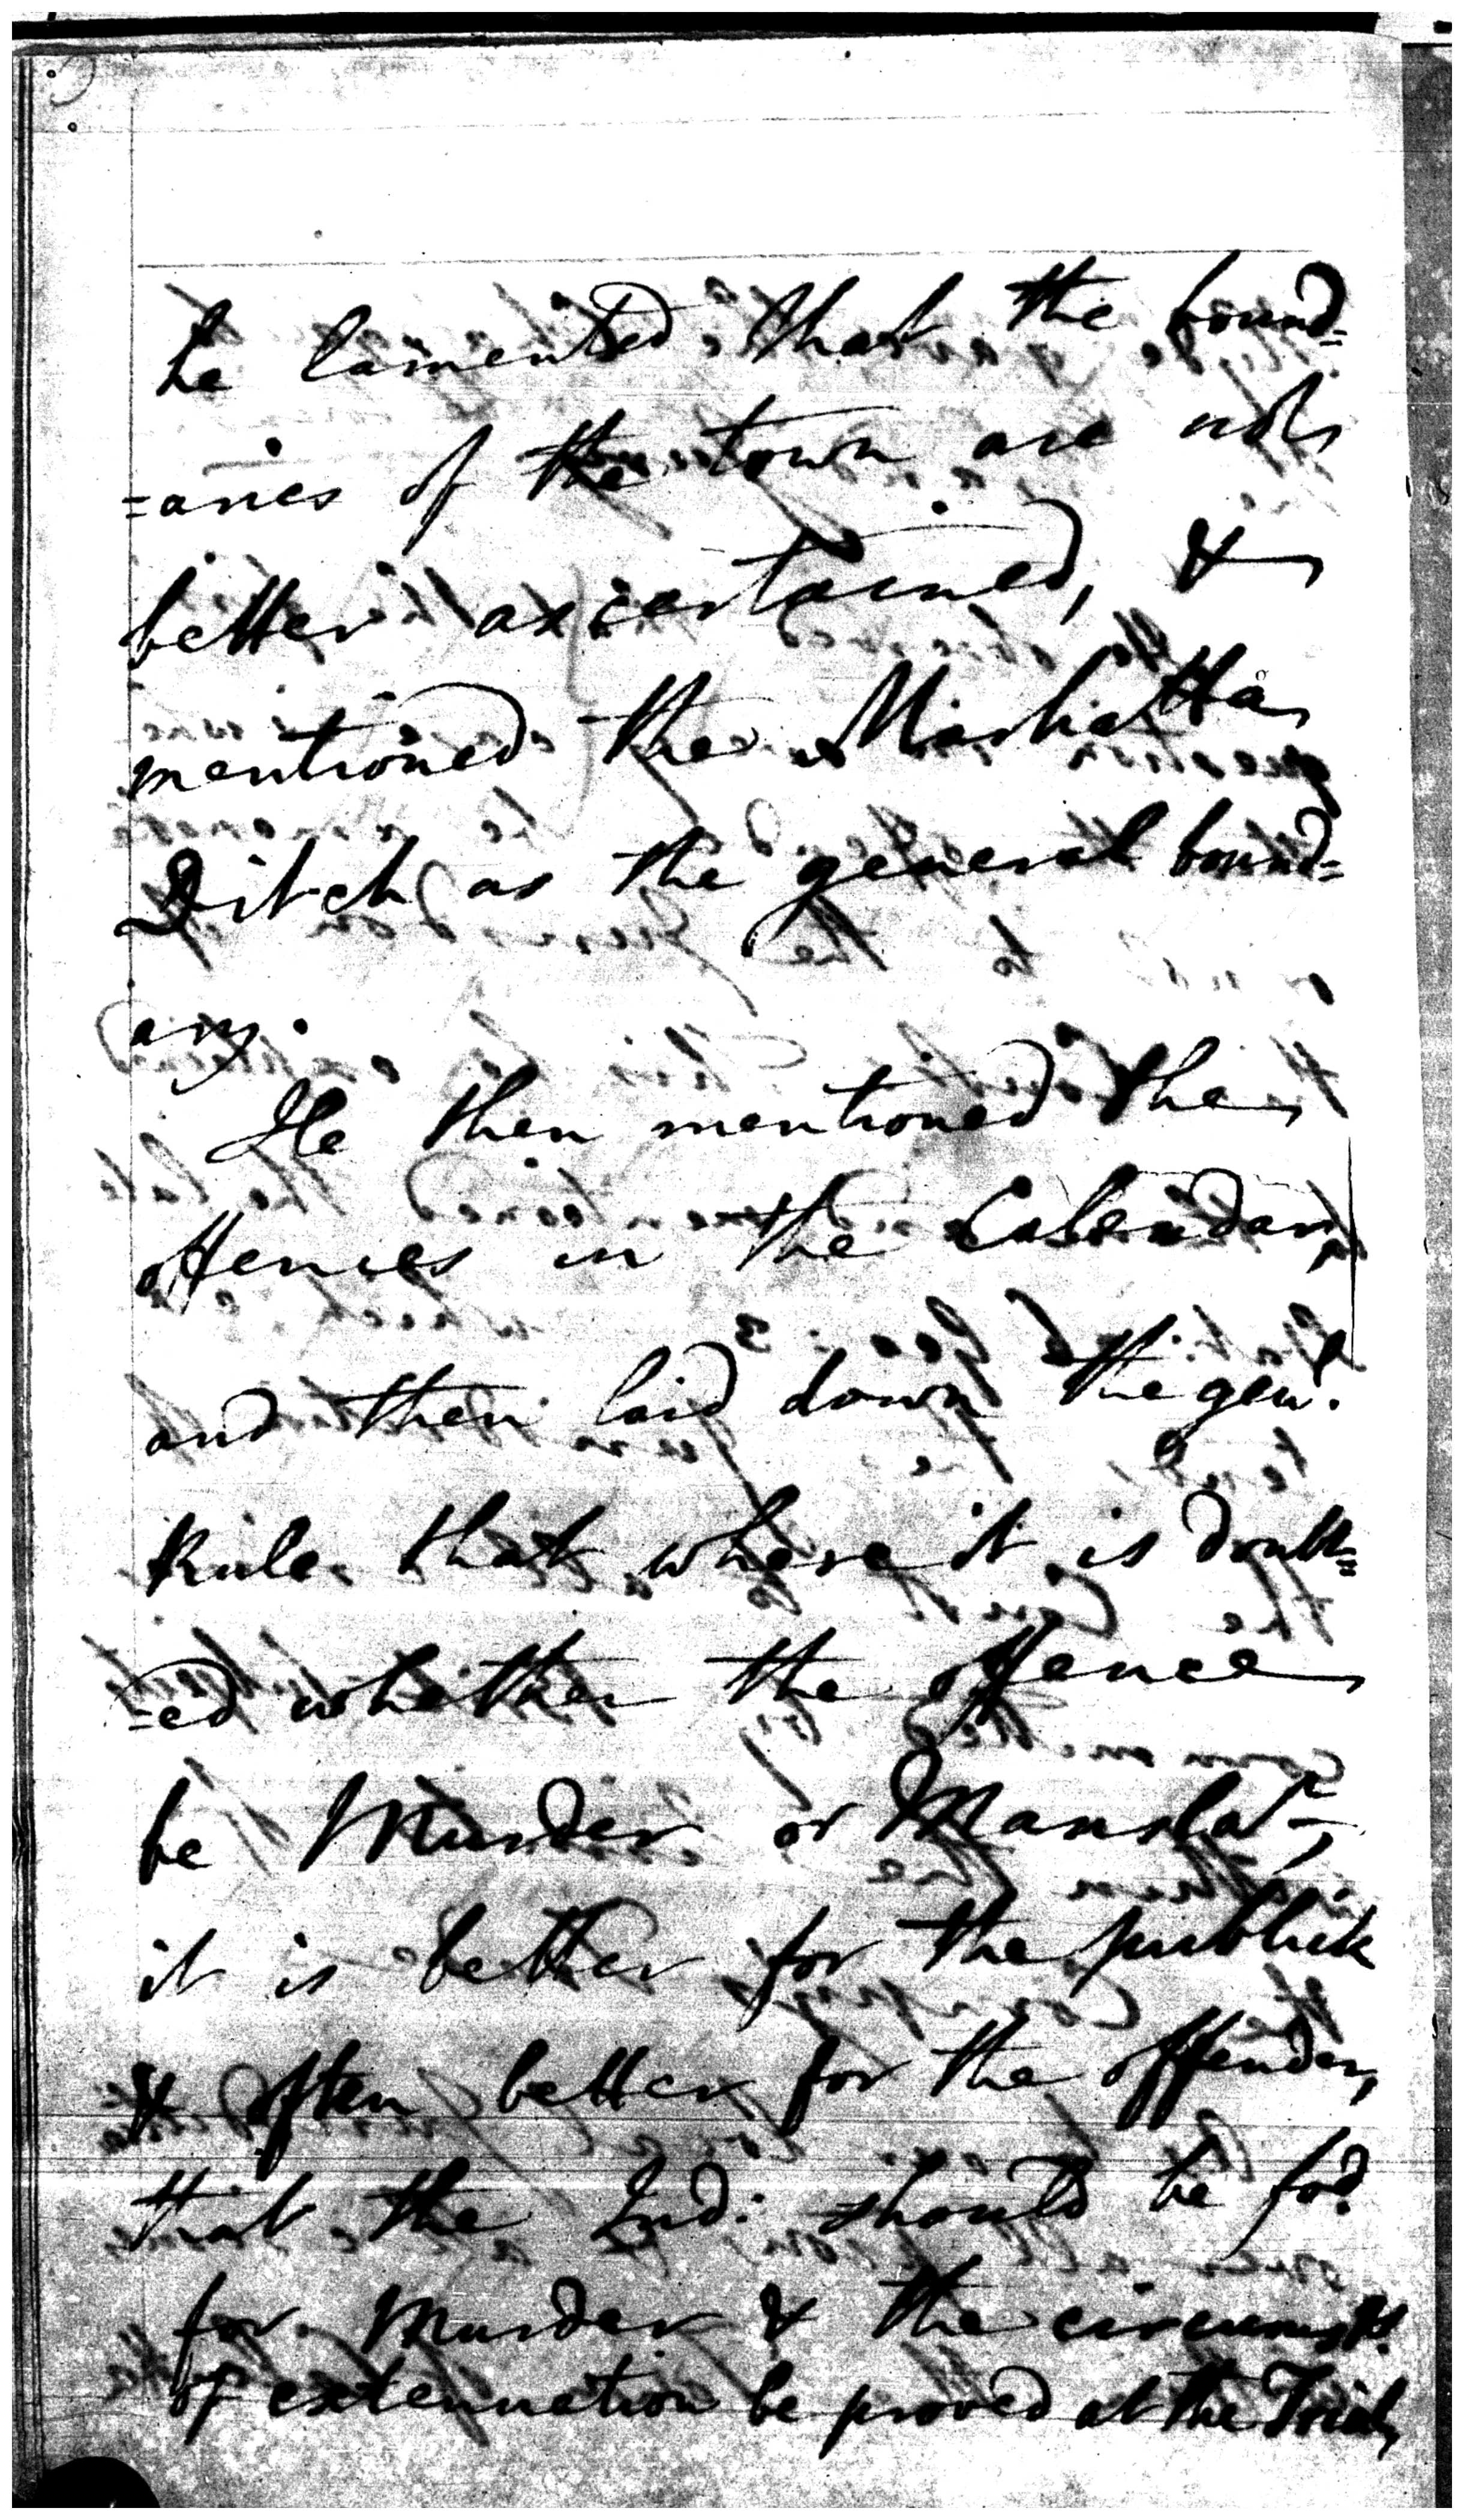 he lamented, that the bound=
=aries of the town are not
better ascertained, &
mentioned the Marhatta
Ditch as the general bound=
ary.
He then mentioned the
offences in the Calendar,
and then laid down the genl.
Rule that where it is doubt=
=ed whether the offence
be Murder or Manslar,
it is better for the publick
& often better for the offender,
that the Ind: should be fod.
for Murder & the circumsts.
of extenuation be proved at the Trial,